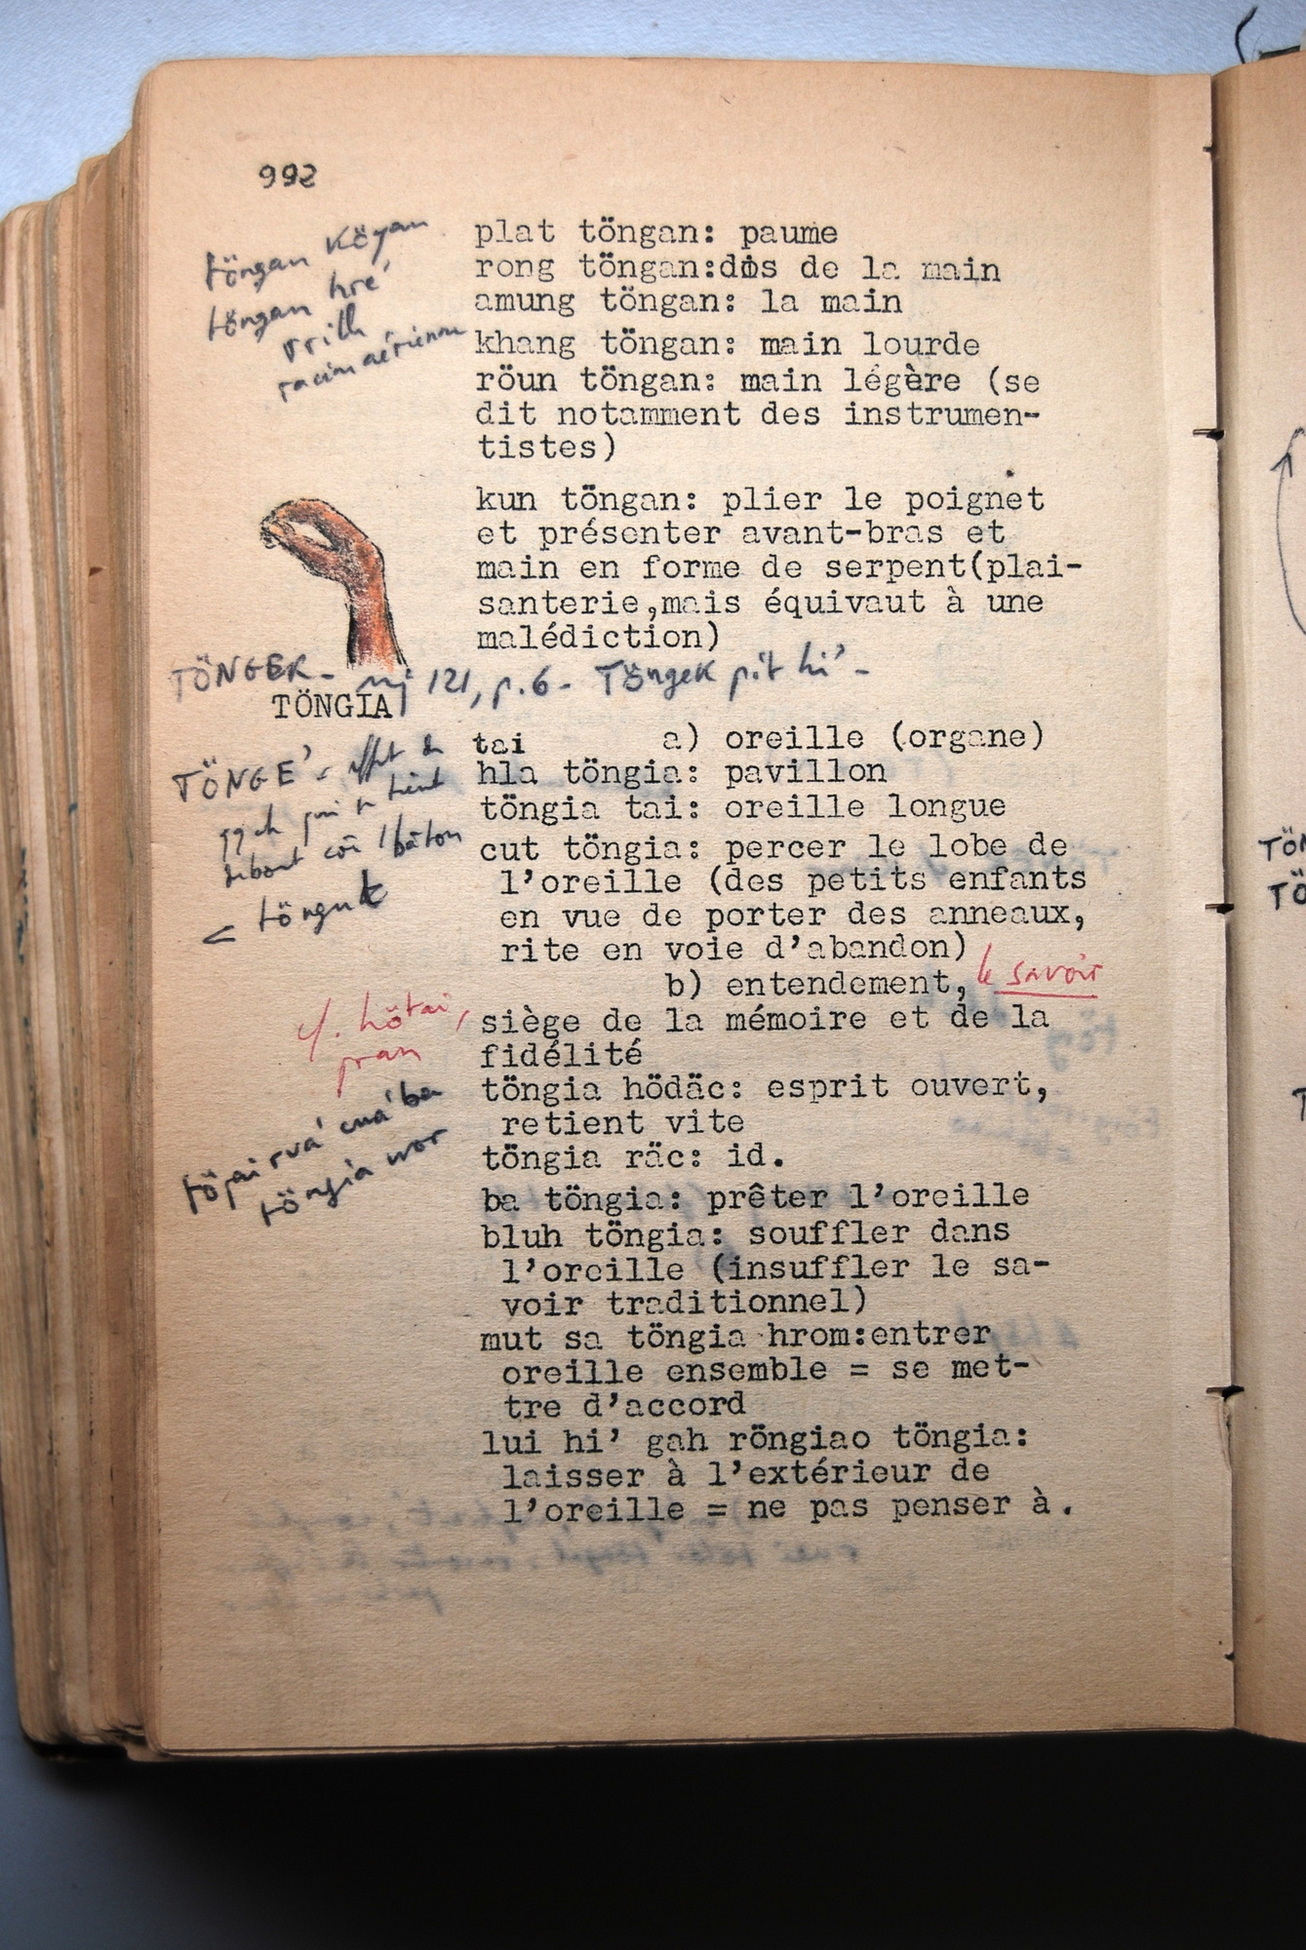 992
töngan Köyan
töngan hré
vrille
racine aérienne
plat töngan: paume
rong töngan:dos de la main
amung töngan: la main
khang töngan: main lourde
röun töngan: main légère (se
dit notamment des instrumen-
tistes)
kun töngan: plier le poignet
et présenter avant-bras et
main en forme de serpent(plai-
santerie,mais équivaut à une
malédiction)
TÖNGEK - 121, p.6 - Töngek pit hi' -
TÖNGIA
TÖNGE'
debout bâton
< töngut
tai a) oreille (organe)
hla töngia: pavillon
töngia tai: oreille longue
cut töngia: percer le lobe de
l'oreille (des petits enfants
en vue de porter des anneaux,
rite en voie d'abandon)
b) entendement, le savoir
cf. hötai,
pran
siège de la mémoire et de la
fidélité
töngia hödäc: esprit ouvert,
retient vite
töngia räc: id.
töpai rvá cuá ba
töngia wor
ba töngia: prêter l'oreille
bluh töngia: souffler dans
l'oreille (insuffler le sa-
voir traditionnel)
mut sa töngia hrom:entrer
oreille ensemble = se met-
tre d'accord
lui hi' gah röngiao töngia:
laisser à l'extérieur de
l'oreille = ne pas penser à.
TÖ